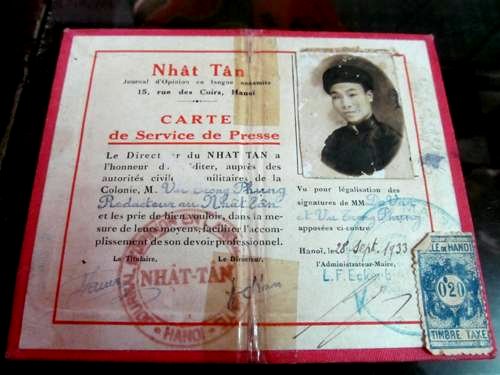 Nhât Tân
Journal d'Opinion en langue annamite
15, rue des Cuirs, Hanoi
CARTE
de Service de Presse
Le Direct du NHAT TAN a
l'honneur d diter, auprès des
autorités civil militaires de la
Colonie, M. Vu Trong Phung
Rédacteur au Nhât Tân
et les prie de bien vouloir, dans la me-
sure de leurs moyens, faciliter l'accom-
plissement de son devoir professionnel.
Le Titulaire, Le Directeur,
NHÂT-TÂN
HANOI
JOURNAL
Vu pour légalisation des
signatures de MM.
et Vu Trong Phung
apposées ci-contre
Hanoi, le 28 Sept. 1933
l'Administrateur-Maire,
VILLE DE HANOI
0$20
TIMBRE TAXE